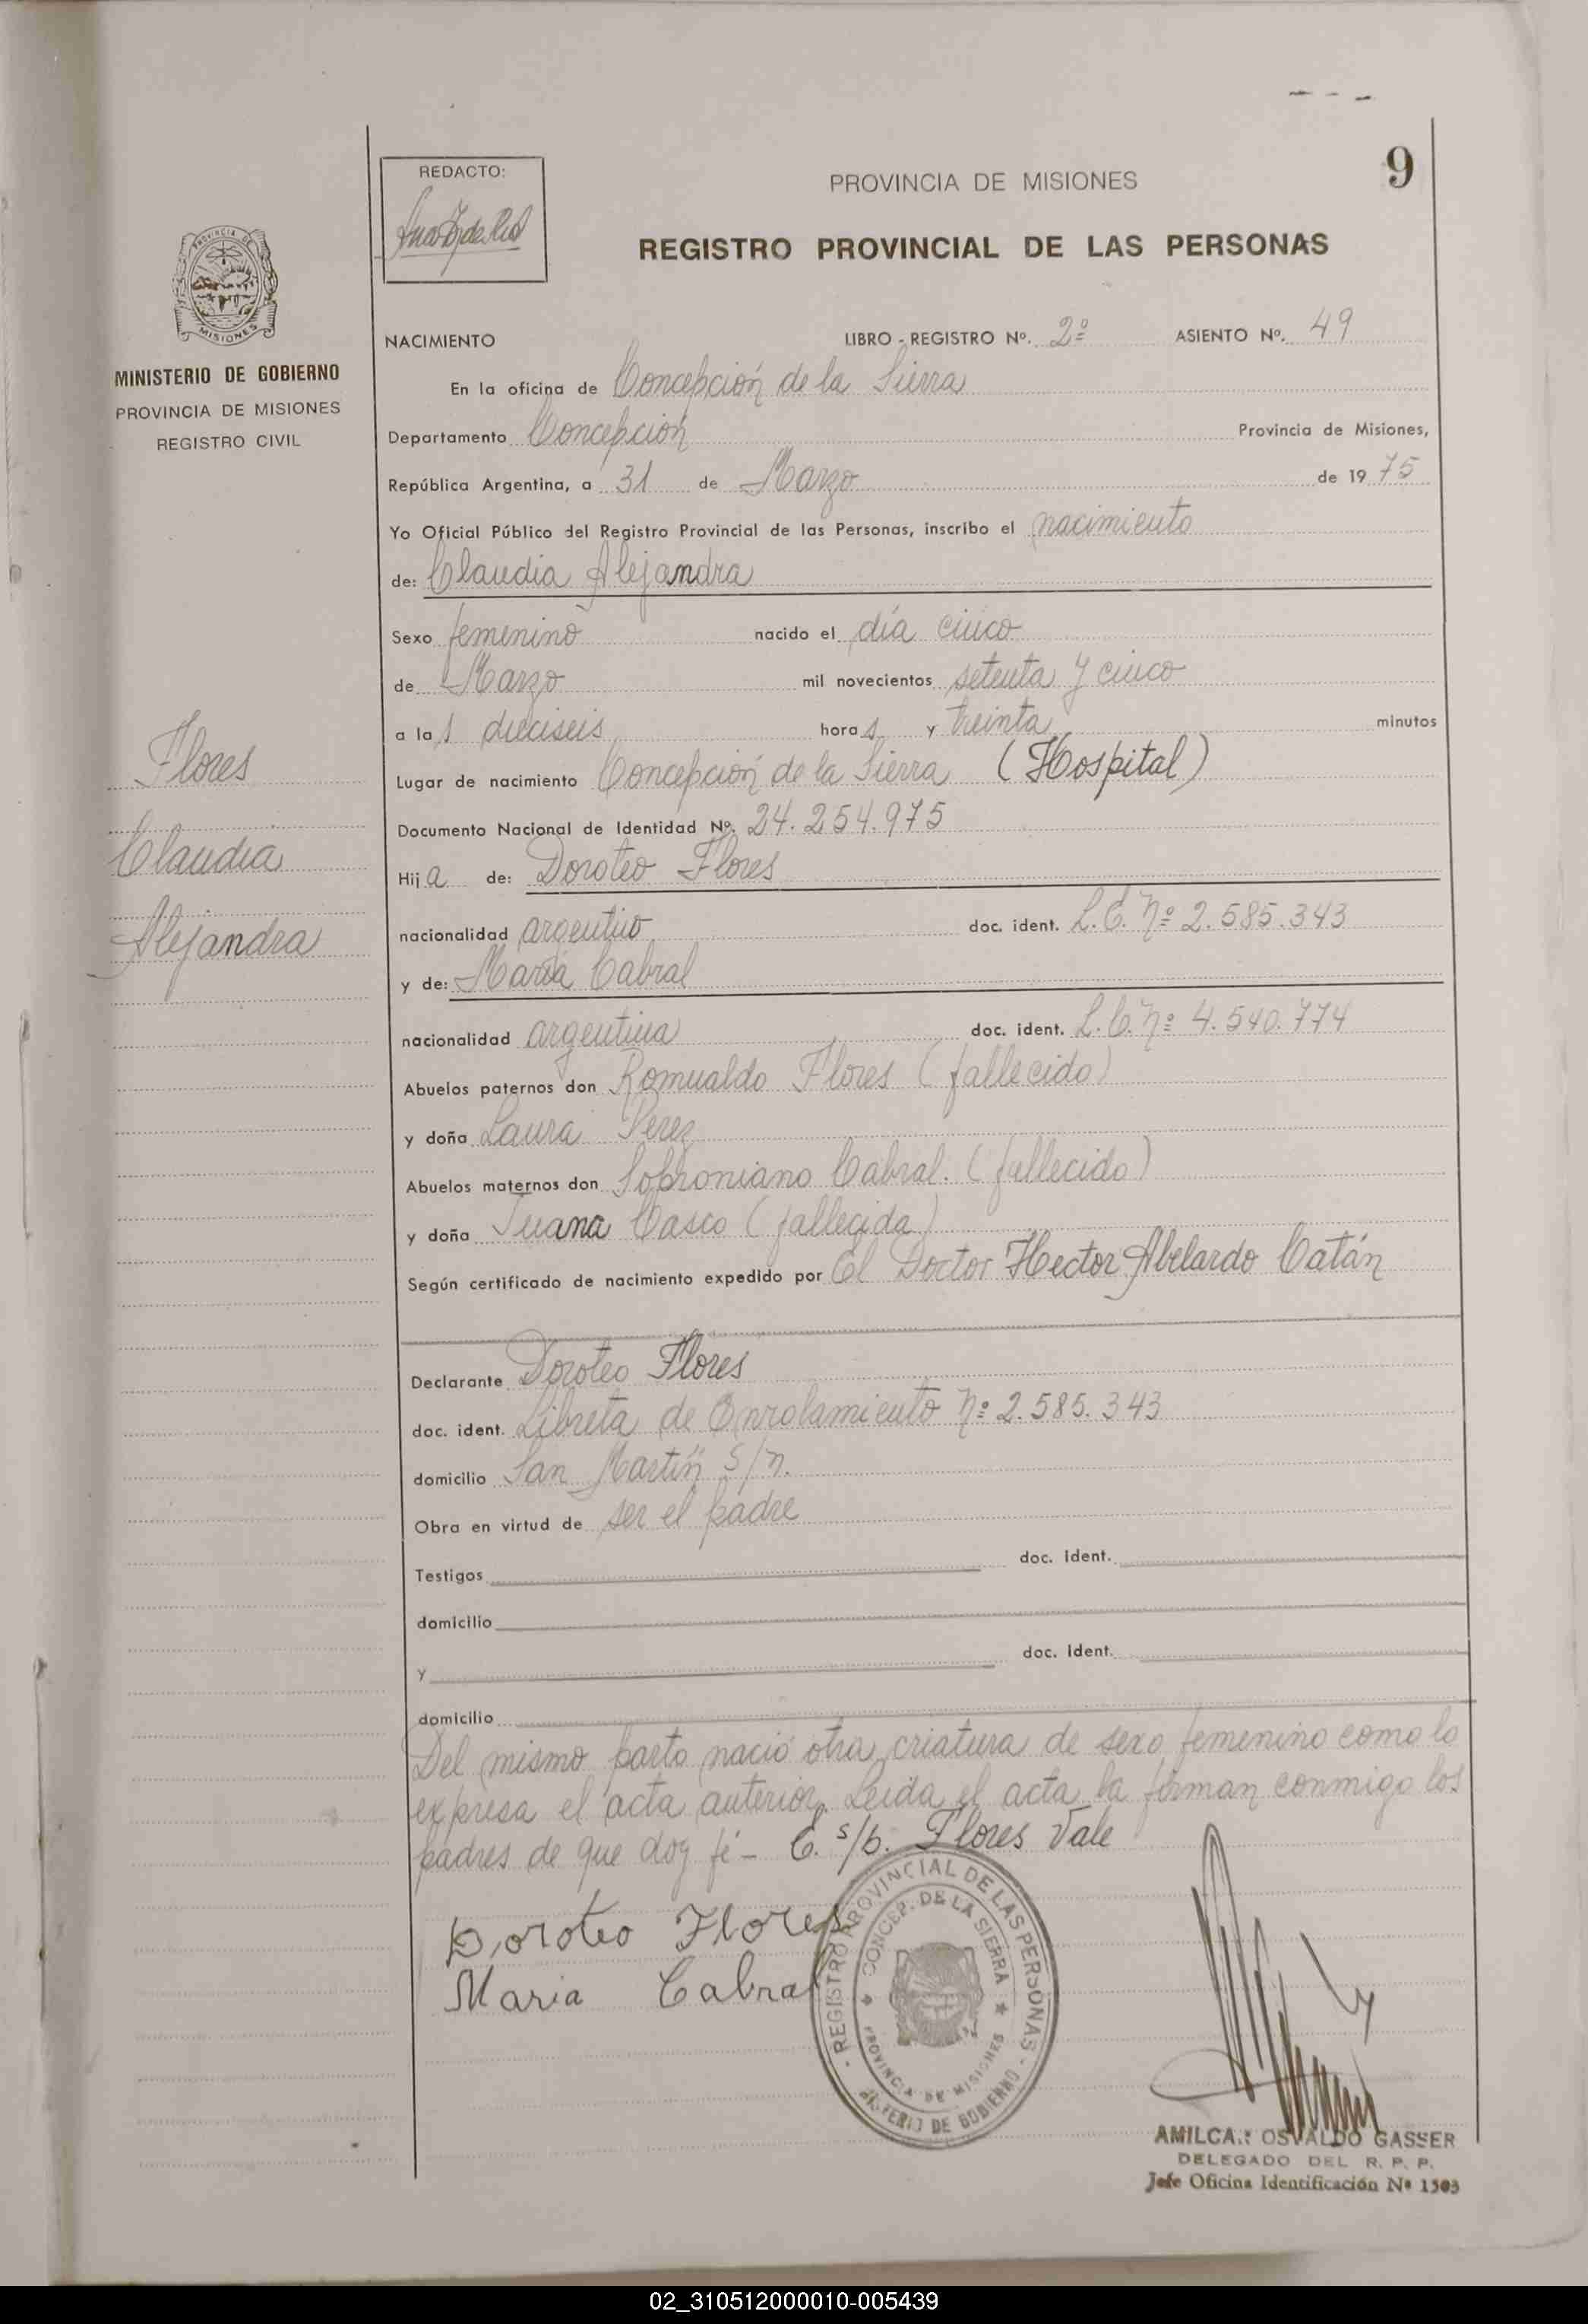 9
REDACTO:
PROVINCIA DE MISIONES
REGISTRO PROVINCIAL DE LAS PERSONAS
PROVINCIA DE
MISIONES
MINISTERIO DE GOBIERNO
PROVINCIA DE MISIONES
REGISTRO CIVIL
NACIMIENTO LIBRO - REGISTRO Nº. 2º ASIENTO Nº. 49
En la oficina de Concepción de la Sierra
Departamento Concepción Provincia de Misiones,
República Argentina, a 31 de Marzo de 19 75
Yo Oficial Público del Registro Provincial de las Personas, inscribo el nacimiento
de: Claudia Alejandra
Sexo femenino nacido el día cinco
de Marzo mil novecientos setenta y cinco
a las dieciseis horas y treinta minutos
Lugar de nacimiento Concepción de la Sierra (Hospital)
Documento Nacional de Identidad Nº. 24.254.975
Hija de: Doroteo Flores
nacionalidad argentino doc. ident. L.E. Nº 2.585.343
y de: María Cabral
nacionalidad argentina doc. ident. L.C. Nº 4.540.774
Abuelos paternos don Romualdo Flores (fallecido)
y doña Laura Perez
Abuelos maternos don Sobroniano Cabral. (fallecido)
y doña Juana Casco (fallecida)
Según certificado de nacimiento expedido por El Doctor Hector Abelardo Catán
Flores
Claudia
Alejandra
Declarante Doroteo Flores
doc. ident. Libreta de Enrolamiento Nº 2.585.343
domicilio San Martín s/n.
Obra en virtud de ser el padre
Testigos doc. ident.
domicilio
y doc. ident.
domicilio
Del mismo parto nació otra criatura de sexo femenino como lo
expresa el acta anterior. Leida el acta la firman conmigo los
padres de que doy fé - E. s/b. Flores Vale
Doroteo Flores
Maria Cabral
REGISTRO PROVINCIAL DE LAS PERSONAS
CONCEP. DE LA SIERRA
PROVINCIA DE MISIONES
DE GOBIERNO
AMILCA.: OSVALDO GASSER
DELEGADO DEL R. P. P.
Jefe Oficina Identificación Nº 1503
02_310512000010-005439